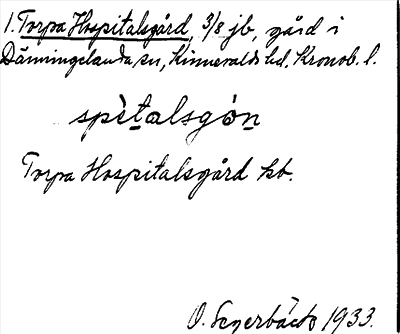 1. Torpa Hospitalsgård, 3/8 jb, gård i
Dänningelanda sn, Kinnevalds hd. Kronob. l.
spètalsgón
Torpa Hospitalsgård kb.
O. 1933.